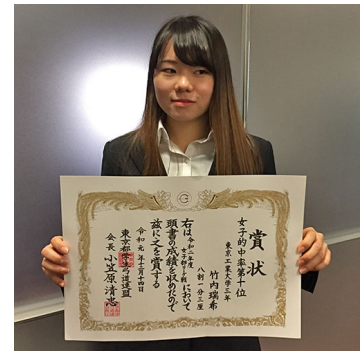 賞状
女子的中率第十位
東京工業大学三年
竹内瑞希
八割一分三厘
右は令和元年度
女子部リーグ戦において
頭書の成績を収めたので
茲に之を賞する
令和元年十一月十四日
東京都学生弓道連盟
会長 小笠原清忠